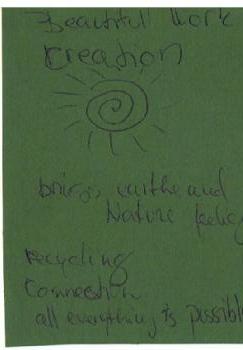 Beautiful Work
creation
and
Nature feeling
recycling
Connection
all everything is possibl